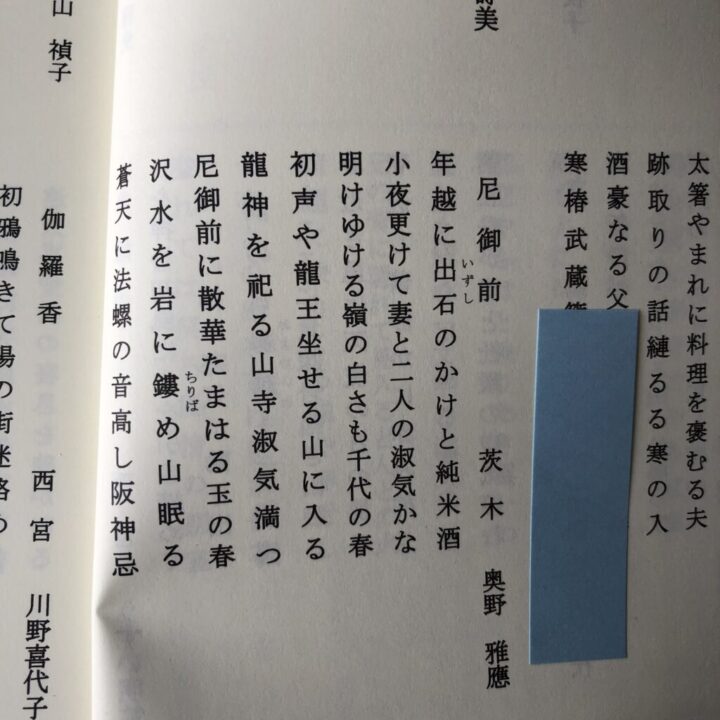 美
山 禎子
太箸やまれに料理を褒むる夫
跡取りの話縺るる寒の入
酒豪なる父
寒椿武蔵
尼御前 茨木 奥野 雅應
年越に出石のかけと純米酒
いずし
小夜更けて妻と二人の淑気かな
明けゆける嶺の白さも千代の春
初声や龍王坐せる山に入る
龍神を祀る山寺淑気満つ
尼御前に散華たまはる玉の春
沢水を岩に鏤め山眠る
ちりば
蒼天に法螺の音高し阪神忌
伽羅香 西宮 川野喜代子
初鴉鳴きて湯の街迷路め